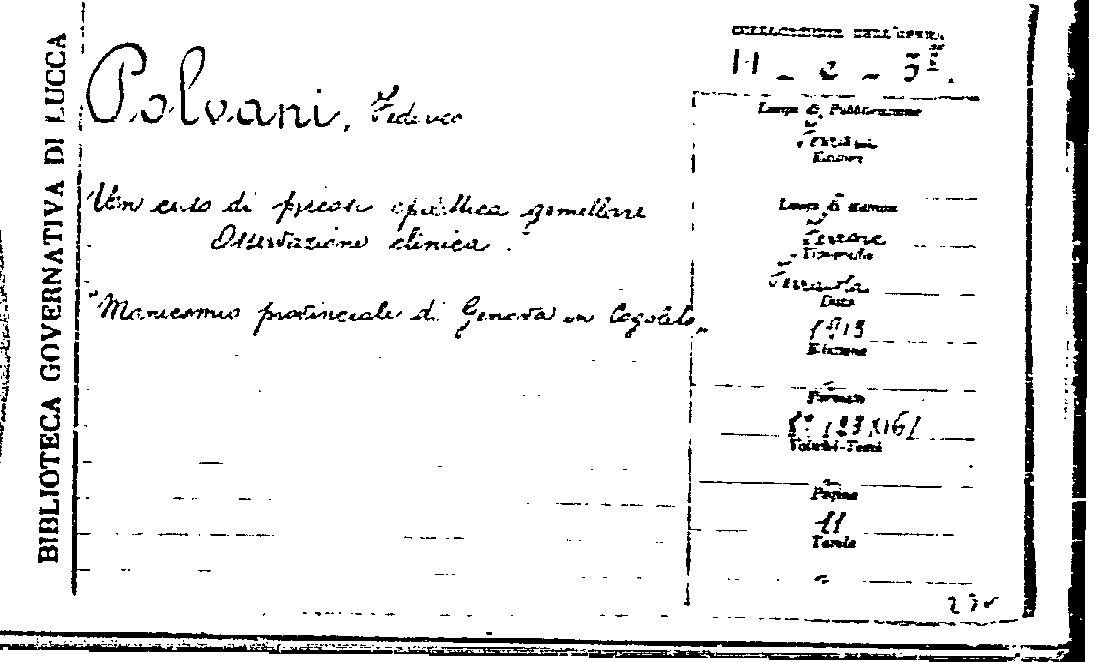 BIBLIOTECA GOVERNATIVA DI LUCCA
Polvani, Federico
Un caso di psicosi epilettica gemellare
Osservazione clinica.
"Manicomio provinciale di Genova in Cogoleto"
COLLOCAZIONE DELL'OPERA
H - c - 5
Luogo di Pubblicazione
Editore
Luogo di Stampa
Ferrara
Tipografia
Data
1913
Edizione
Formato
8° 123X161
Volumi-Tomi
Pagine
11
Tavole